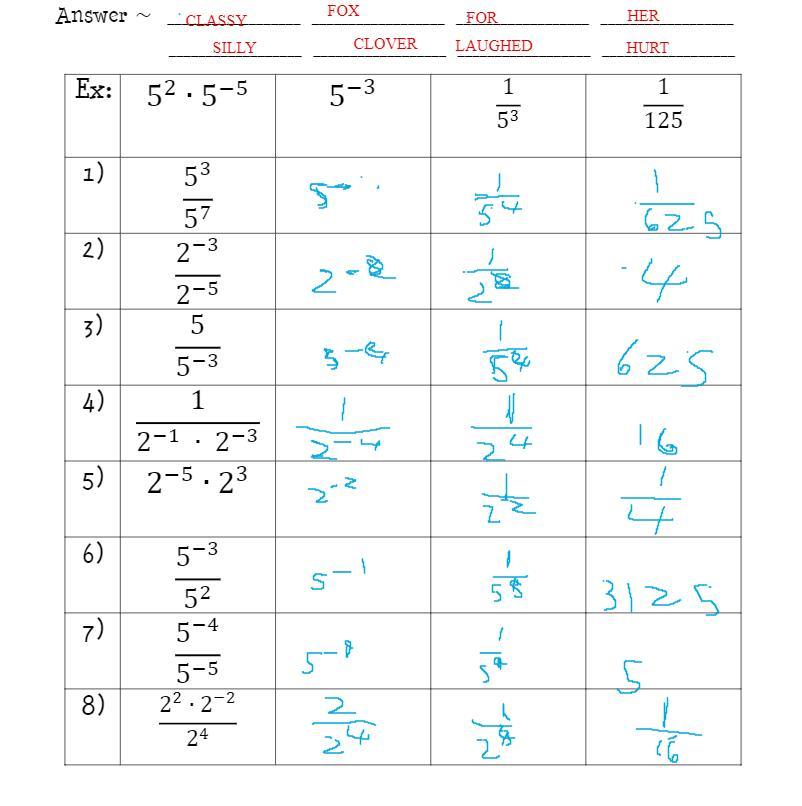 Answer ~ CLASSY FOX FOR HER
SILLY CLOVER LAUGHED HURT
Ex: 5² · 5⁻⁵ 5⁻³ 1/5³ 1/125
1) 5³/5⁷ 5⁻ 1/5⁴ 1/625
2) 2⁻³/2⁻⁵ 2⁻ 1/2 4
3) 5/5⁻³ 5⁻⁴ 1/5⁴ 625
4) 1/(2⁻¹ · 2⁻³) 1/2⁻⁴ 1/2⁴ 16
5) 2⁻⁵ · 2³ 2⁻² 1/2² 1/4
6) 5⁻³/5² 5⁻¹ 1/5⁵ 3125
7) 5⁻⁴/5⁻⁵ 5⁻ 1/5 5
8) (2² · 2⁻²)/2⁴ 2/2⁴ 1/2 1/16